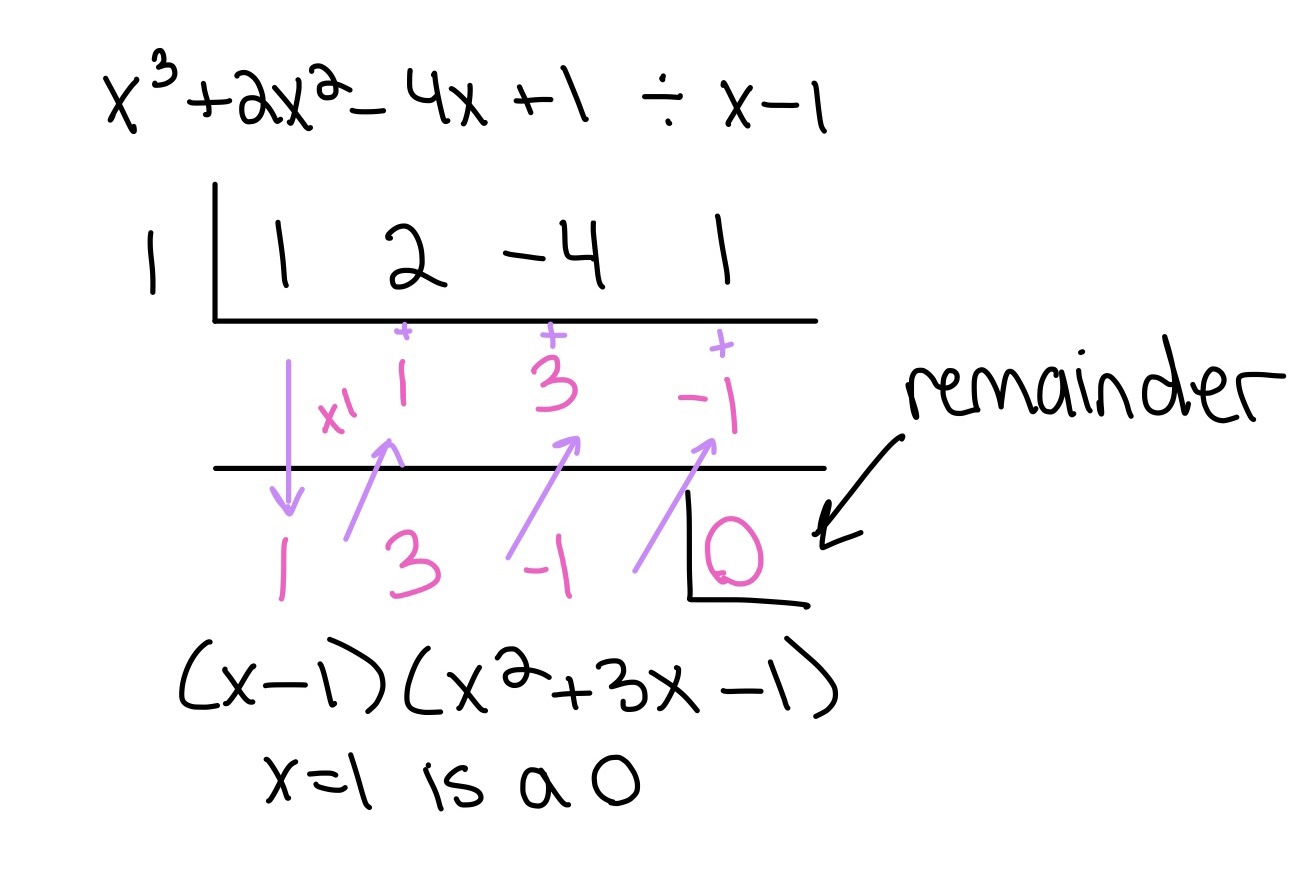 x³+2x²-4x+1 ÷ x-1
1 1 2 -4 1
+ + +
x1 1 3 -1
remainder
1 3 -1 0
(x-1)(x²+3x-1)
x=1 is a 0